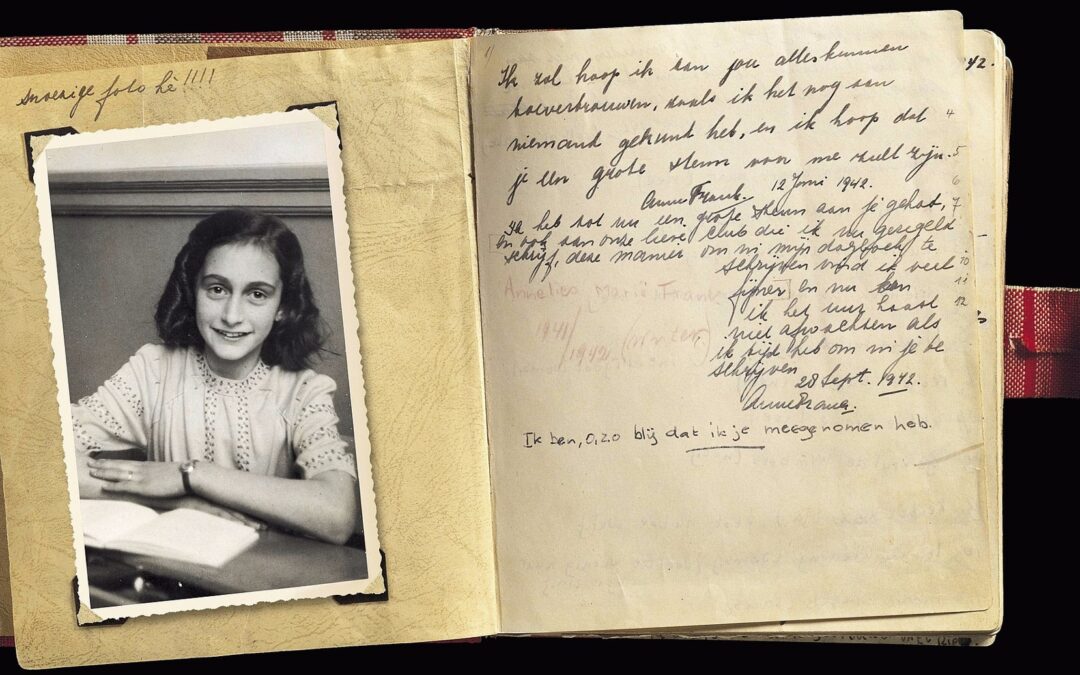 snoezige foto hè!!!!
Ik zal hoop ik aan jou alles kunnen
toevertrouwen, zoals ik het nog aan
niemand gekund heb, en ik hoop dat 4
je een grote steun voor me zult zijn. 5
Anne Frank. 12 Juni 1942. 6
Ik heb tot nu een grote steun aan je gehad, 7
en ook aan onze lieve club die ik nu geregeld
schrijf, deze manier om in mijn dagboek te
schrijven vind ik veel 10
fijner en nu kan 11
ik het uur haast 12
niet afwachten als
ik tijd heb om in je te
schrijven
28 Sept. 1942.
Anne Frank.
Annelies Marie Frank
1941/
1942 (winter)
Ik ben, o, zo blij dat ik je meegenomen heb.
42.